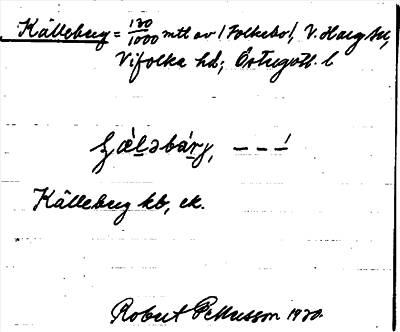 Källeberg = 120/1000 mtl av 1 Folkebo!, V. Harg sn,
Vifolka hd; Östergötl. l
ʒæ̀lǝbárj, – – –́
Källeberg kb, ek.
Robert Pettersson 1920.